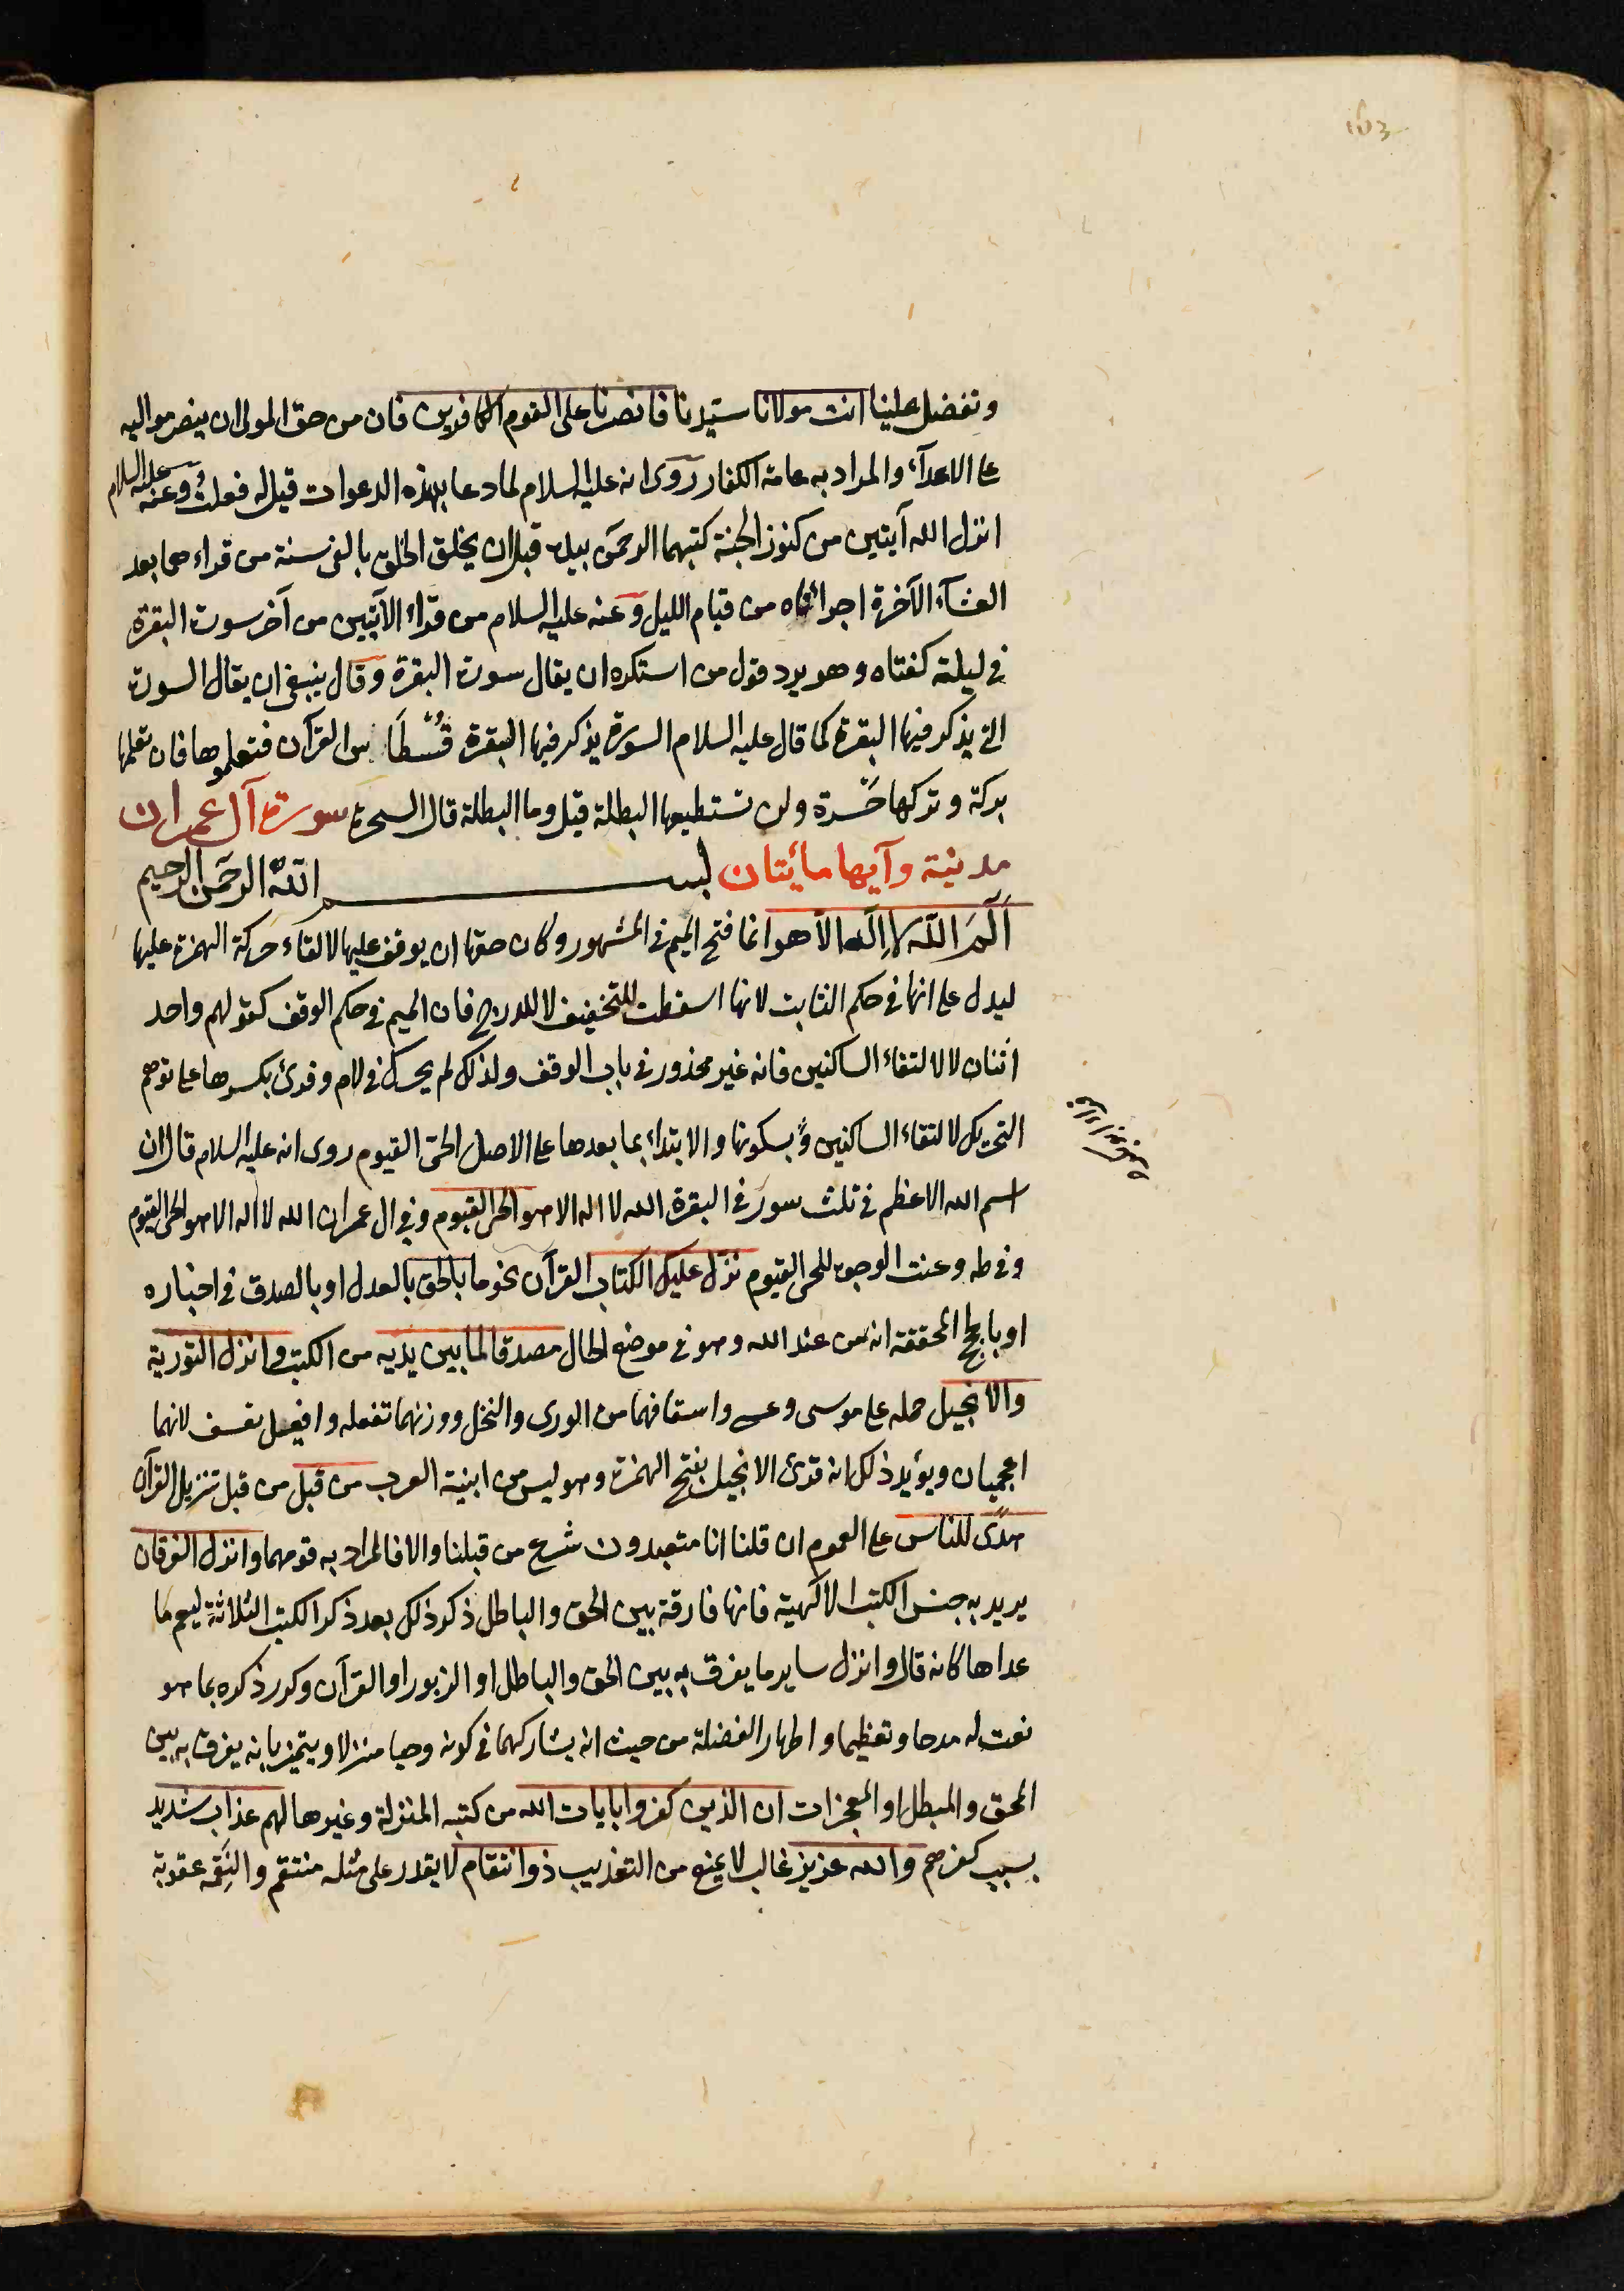 163
وتفضل علينا انت مولانا سيّدنا فانصرنا على القوم الكافرين فان من حق المولى ان ينصر مواليه
على الاعدآء والمراد به عامة الكفار روى انه عليه السلام لما دعا بهذه الدعوات قيل له فعلتُ وعنه عليه السلام
انزل الله آيتين من كنوز الجنة كتبهما الرحمن بيده قبل ان يخلق الخلق بالفى سنة من قراءهما بعد
العشآء الآخرة اجزأتاه من قيام الليل وعنه عليه السلام من قراء الآيتين من آخر سورة البقرة
فى ليلة كفتاه وهو يرد قول من استكره ان يقال سورة البقرة وقال ينبغى ان يقال السورة
التى يذكر فيها البقرة كما قال عليه السلام السورة يذكر فيها البقرة فُسْطَا القرآن فتعلموها فان تعلمها
بركة وتركها حَسْرة ولن تستطيعها البطلة قيل وما البطلة قال السحرة سورة آل عمران
مدنية وآيها مائتان بسم اللّه الرحمن الرحيم
آلم اللّه لا اِلٰه الا هو انما فتح الميم فى المشهور وكان حقها ان يوقف عليها لالقاء حركة الهمزة عليها
ليدل على انها فى حكم الثابت لانها اسقطت للتخفيف لا للدرج فان الميم فى حكم الوقف كقولهم واحد
اثنان لا لالتقاء الساكنين فانه غير محذور فى باب الوقف ولذلك لم يحرك فى لام وقرئ بكسرها على توهم
التحريك لالتقاء الساكنين وَ بسكونها والابتداء بما بعدها على الاصل الحىّ القيوم روى انه عليه السلام قال ان
اسم الله الاعظم فى ثلث سور فى البقرة الله لا اله الا هو الحى القيوم وفى ال عمران الله لا اله الا هو الحى القيوم
وفى طه وعنت الوجوه للحى القيوم نزّل عليك الكتاب القرآن نجوما بالحق بالعدل او بالصدق فى اخباره
او بالحجج المحققة انه من عند الله وهو فى موضع الحال مصدقا لما بين يديه من الكتب وانزل التورية
والانجيل جملة على موسى وعيسى واشتقاقهما من الورى والنجل ووزنهما تفعلة وافعيل تعسف لانهما
اعجميان ويؤيد ذلك انه قرئ الانجيل بفتح الهمزة وهو ليس من ابنية العرب من قبل من قبل تنزيل القرآن
هدًى للناس على العموم ان قلنا انا متعبدون بشرع من قبلنا والا فالمراد به قومهما وانزل الفرقان
يريد به جنس الكتب الالٓهية فانها فارقة بين الحق والباطل ذكر ذلك بعد ذكر الكتب الثلاثة ليعم ما
عداها كانه قال وانزل ساير ما يفرق به بين الحق والباطل او الزبور او القرآن وكرر ذكره بما هو
نعت له مدحا وتعظيما واظهار الفضله من حيث انه يشاركهما فى كونه وحيا منزلا ويتميز بانه يفرق به بين
المحق والمبطل او المعجزات ان الذين كفروا بايات الله من كتبه المنزلة وغيرها لهم عذاب شديد
بسبب كفرهم والله عزيز غالب لا يمنع من التعذيب ذو انتقام لا يقدر على مثله منتقم والنِقمة عقوبة